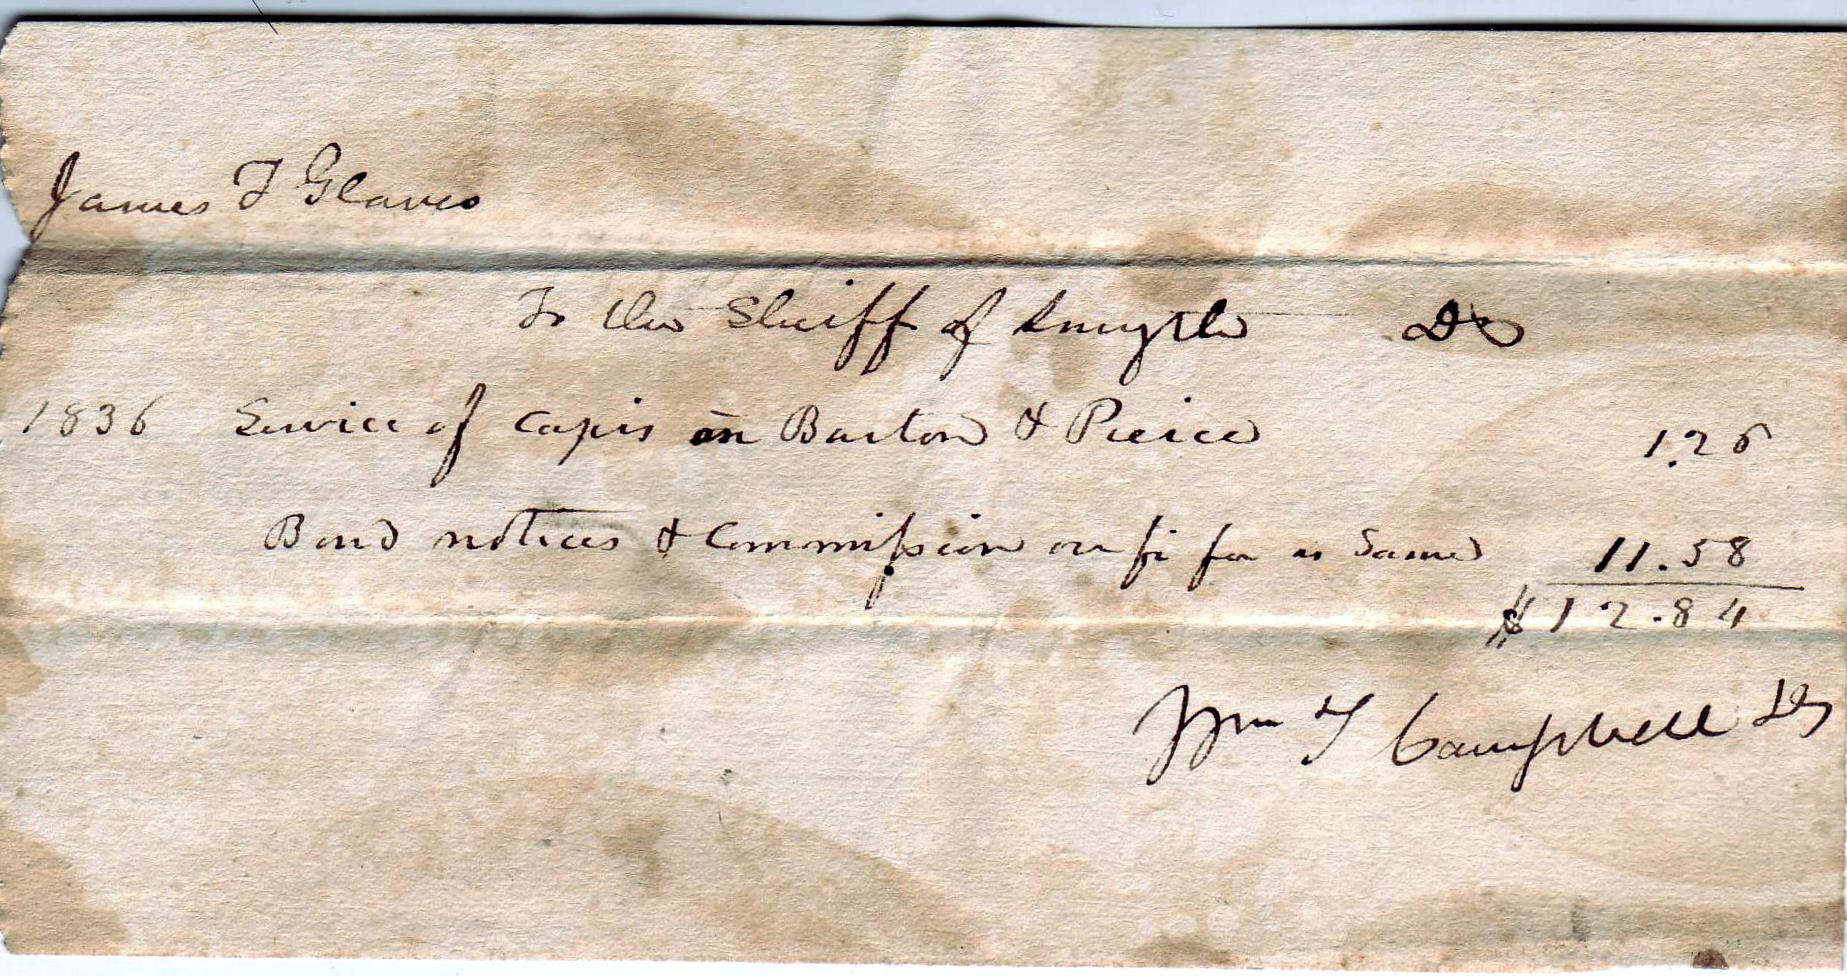 James T Glaves
To the Sheriff of Smyth Dr
1836 Service of capis on Barton & Peirce 1.26
Bond notices & Commission on fi fa vs Same 11.58
$12.84
Wm T Campbell DS